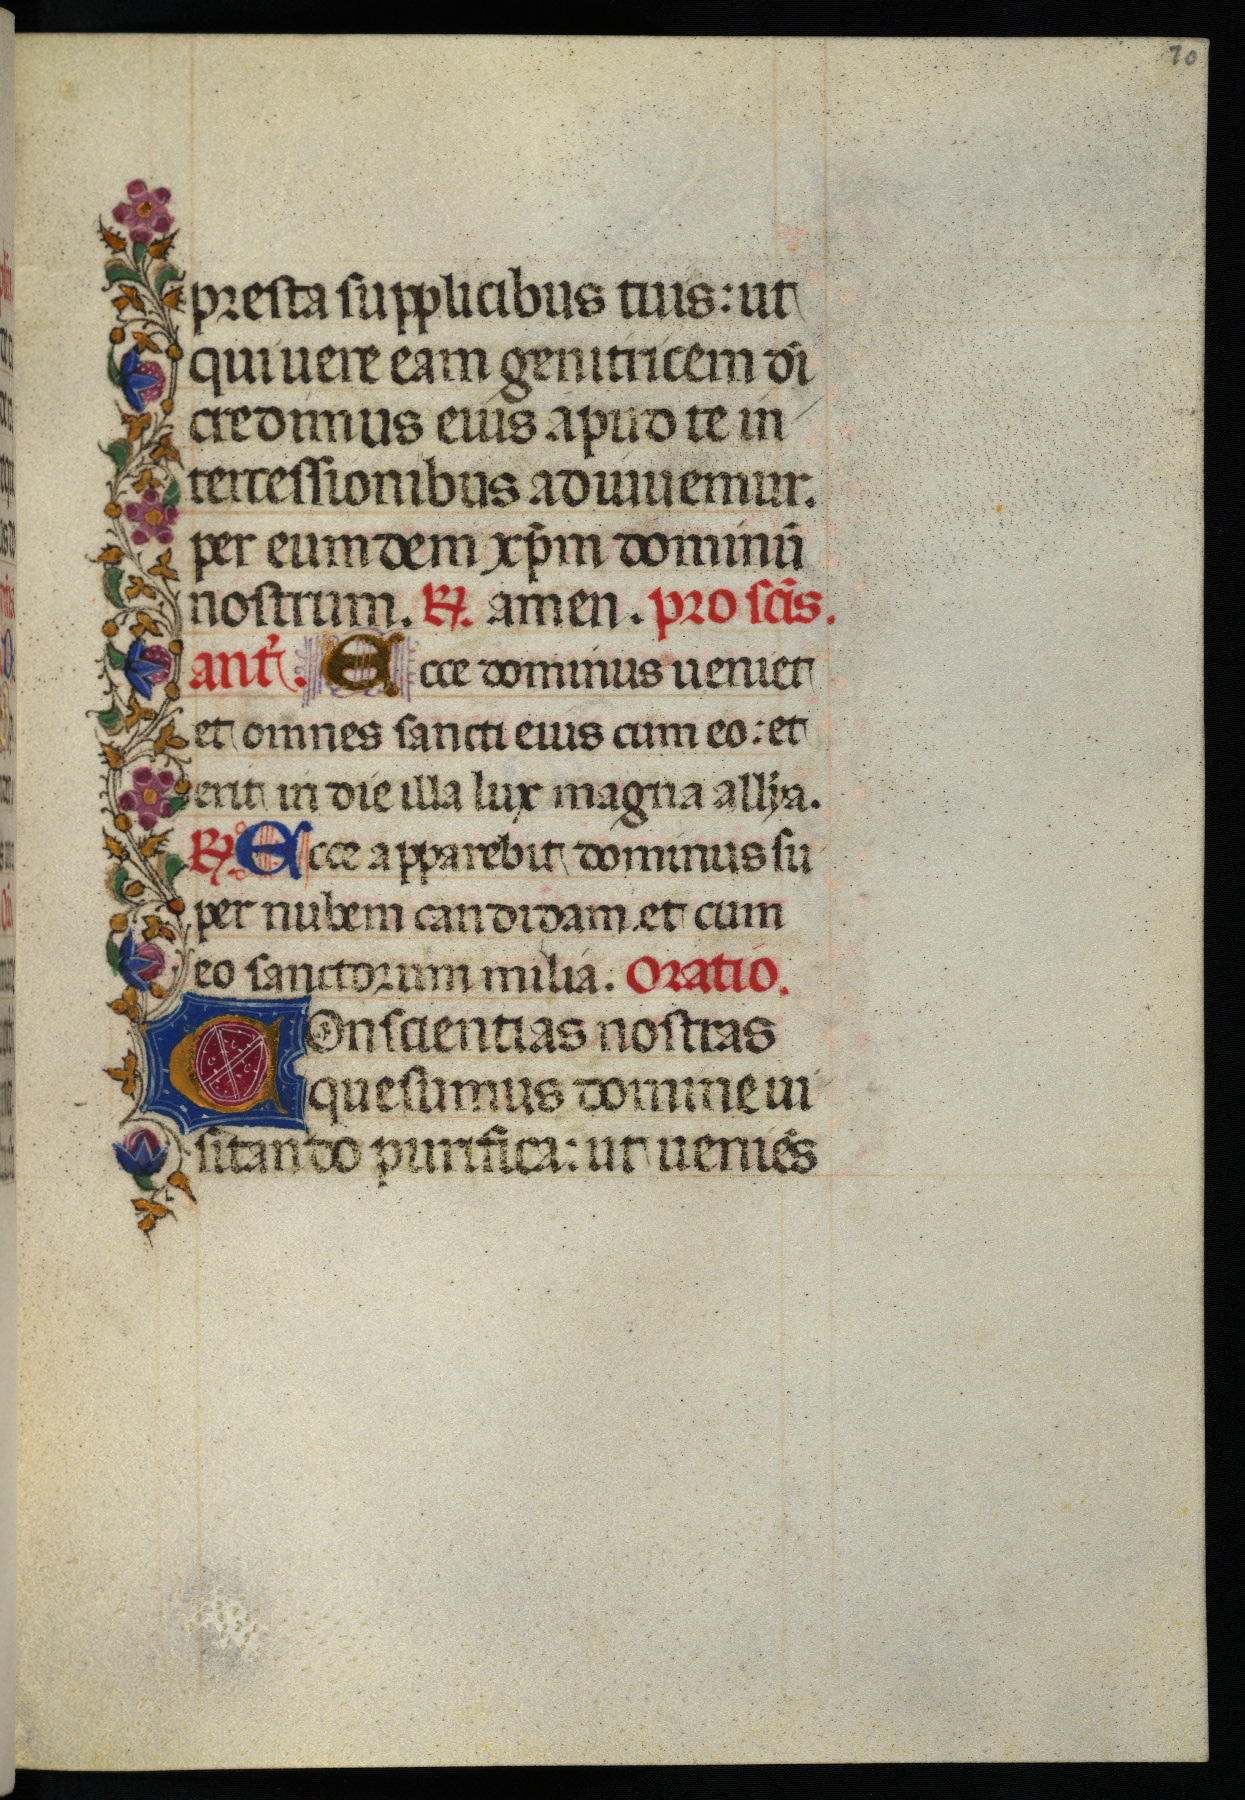 70
presta supplicibus tuis: ut
qui uere eam genitricem dī
credimus eius apud te in
tercessionibus adiuuemur.
per eumdem xp̄m dominū
nostrum. ℟. amen. pro scīs.
ant̄. Ecce dominus ueniet
et omnes sancti eius cum eo: et
erit in die illa lux magna allīa.
℟. Ecce apparebit dominus su
per nubem candidam. et cum
eo sanctorum milia. Oratio.
Conscientias nostras
quesumus domine ui
sitando purifica: ut ueniēs